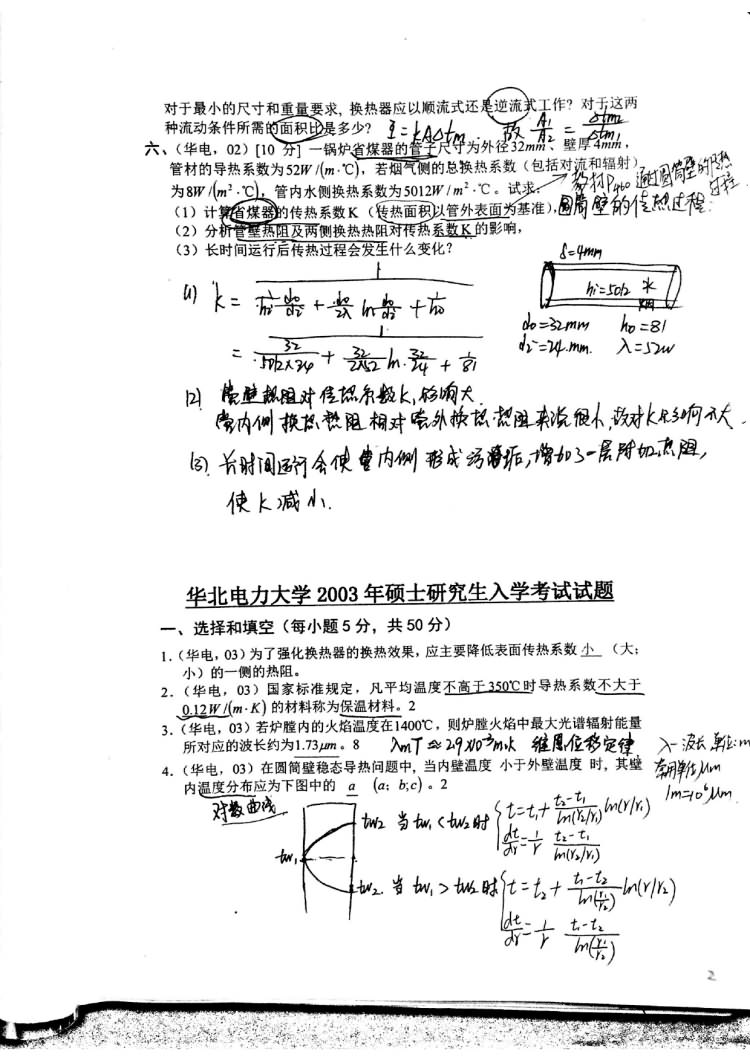 对于最小的尺寸和重量要求, 换热器应以顺流式还是逆流式工作? 对于这两
种流动条件所需的面积比是多少? Φ=kAΔtm 故 A1/A2 = Δtm2/Δtm1
六、(华电, 02) [10 分] 一锅炉省煤器的管子尺寸为外径32mm、壁厚4mm,
管材的导热系数为52W/(m·℃), 若烟气侧的总换热系数 (包括对流和辐射)
为8W/(m²·℃), 管内水侧换热系数为5012W/m²·℃。试求: 教材P460 通过圆筒壁的传热过程
(1) 计算省煤器的传热系数K (传热面积以管外表面为基准), 圆筒壁的传热过程:
(2) 分析管壁热阻及两侧换热热阻对传热系数K的影响,
(3) 长时间运行后传热过程会发生什么变化?
δ=4mm
hi=5012 水
烟
d0=32mm h0=81
di=24.mm. λ=52w
(1) k = 1/(1/hi·d0/di + d0/2λ ln d0/di + 1/h0)
= 1/(32/(5012×24) + 32/(2×52) ln 32/24 + 1/81)
(2) 管壁热阻对传热系数k,影响大.
管内侧换热热阻相对管外换热热阻来说很小,故对K影响不大.
(3). 长时间运行会使管内侧形成污垢,增加了一层附加热阻,
使k减小.
华北电力大学 2003 年硕士研究生入学考试试题
一、选择和填空 (每小题 5 分, 共 50 分)
1. (华电, 03) 为了强化换热器的换热效果, 应主要降低表面传热系数 小 (大;
小) 的一侧的热阻。
2. (华电, 03) 国家标准规定, 凡平均温度不高于350℃时导热系数不大于
0.12W/(m·K) 的材料称为保温材料。2
3. (华电, 03) 若炉膛内的火焰温度在1400℃, 则炉膛火焰中最大光谱辐射能量
所对应的波长约为1.73μm。8 λmT≈2.9×10⁻³m·k 维恩位移定律
λ-波长 单位:m
常用单位μm
1m=10⁶μm
4. (华电, 03) 在圆筒壁稳态导热问题中, 当内壁温度 小于外壁温度 时, 其壁
内温度分布应为下图中的 a (a; b; c) 。2
对数曲线
tw1
tw2 当tw1<tw2时 t=t1+(t2-t1)/ln(r2/r1) ln(r/r1)
dt/dr=1/r (t2-t1)/ln(r2/r1)
tw2. 当tw1>tw2时 t=t2+(t1-t2)/ln(r1/r2) ln(r/r2)
dt/dr=1/r (t1-t2)/ln(r1/r2)
2